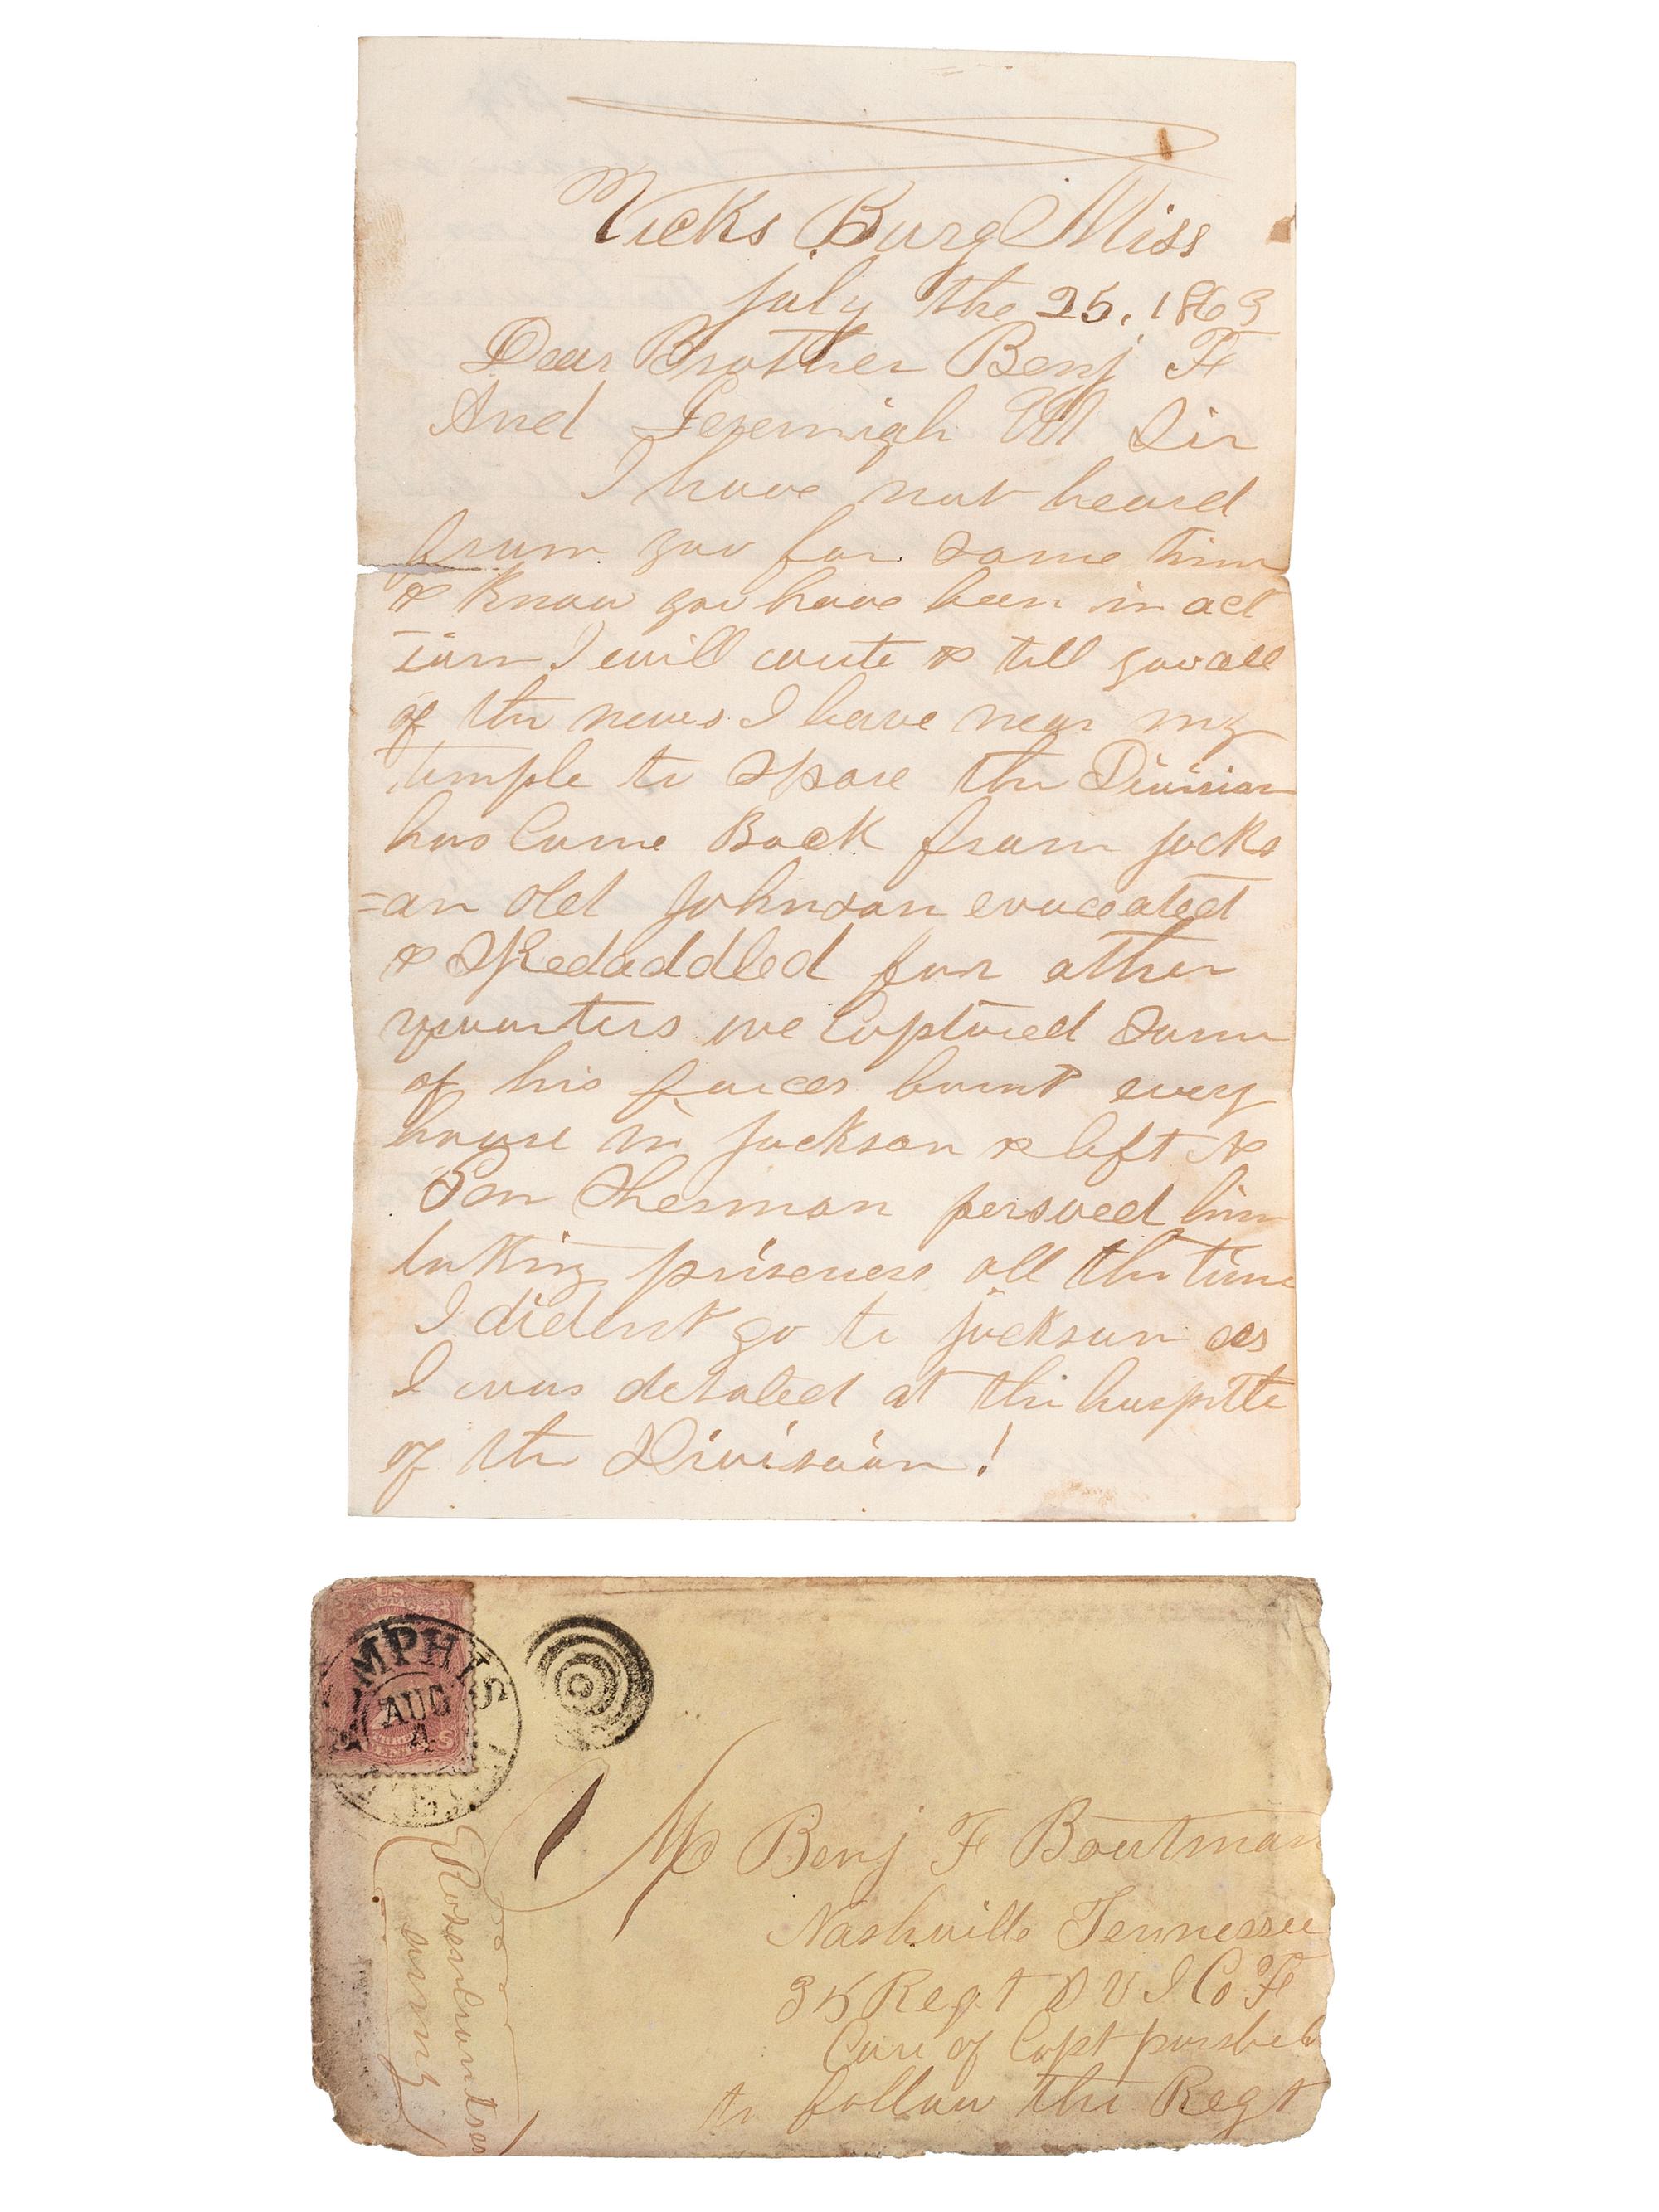 Vicks Burg Miss
july the 25. 1863
Dear Brother Benj F
And Jeremiah W Sir
I have not heard
frum you for some time
& know you have been in act
ion I will write & till you all
of the news I have near my
temple to spare the Division
has Came Back from jacks
=an old Johnson evaceated
& Skedaddled for other
quarters we Captured some
of his forces burnt every
house in jackson & left &
Gen Sherman persued him
taking priseners all the time
I dident go to jackson as
I was detaled at the huspitle
of the Division!
US
POSTAGE
3
THREE
CENTS
MPHIS
AUG
4
Mr Benj F Boutman
Nashville Tennessee
35 Regt O V I Co F
Care of Capt
to follow the Regt
army